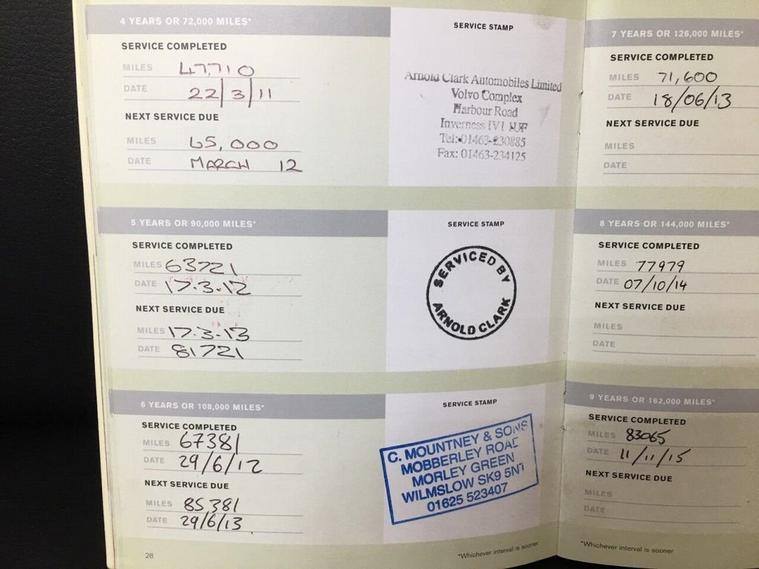 4 YEARS OR 72,000 MILES*
SERVICE COMPLETED
MILES 47,710
DATE 22/3/11
NEXT SERVICE DUE
MILES 65,000
DATE MARCH 12
SERVICE STAMP
Arnold Clark Automobiles Limited
Volvo Complex
Harbour Road
Inverness IV1
Tel: 01463-230885
Fax: 01463-234125
5 YEARS OR 90,000 MILES*
SERVICE COMPLETED
MILES 63721
DATE 17.3.12
NEXT SERVICE DUE
MILES 17.3.13
DATE 81721
SERVICE STAMP
SERVICED BY
ARNOLD CLARK
6 YEARS OR 108,000 MILES*
SERVICE COMPLETED
MILES 67381
DATE 29/6/12
NEXT SERVICE DUE
MILES 85381
DATE 29/6/13
SERVICE STAMP
C. MOUNTNEY & SONS
MOBBERLEY ROAD
MORLEY GREEN
WILMSLOW SK9 5NT
01625 523407
28
*Whichever interval is sooner
7 YEARS OR 126,000 MILES*
SERVICE COMPLETED
MILES 71,600
DATE 18/06/13
NEXT SERVICE DUE
MILES
DATE
8 YEARS OR 144,000 MILES*
SERVICE COMPLETED
MILES 77979
DATE 07/10/14
NEXT SERVICE DUE
MILES
DATE
9 YEARS OR 162,000 MILES*
SERVICE COMPLETED
MILES 83065
DATE 11/11/15
NEXT SERVICE DUE
MILES
DATE
*Whichever interval is sooner